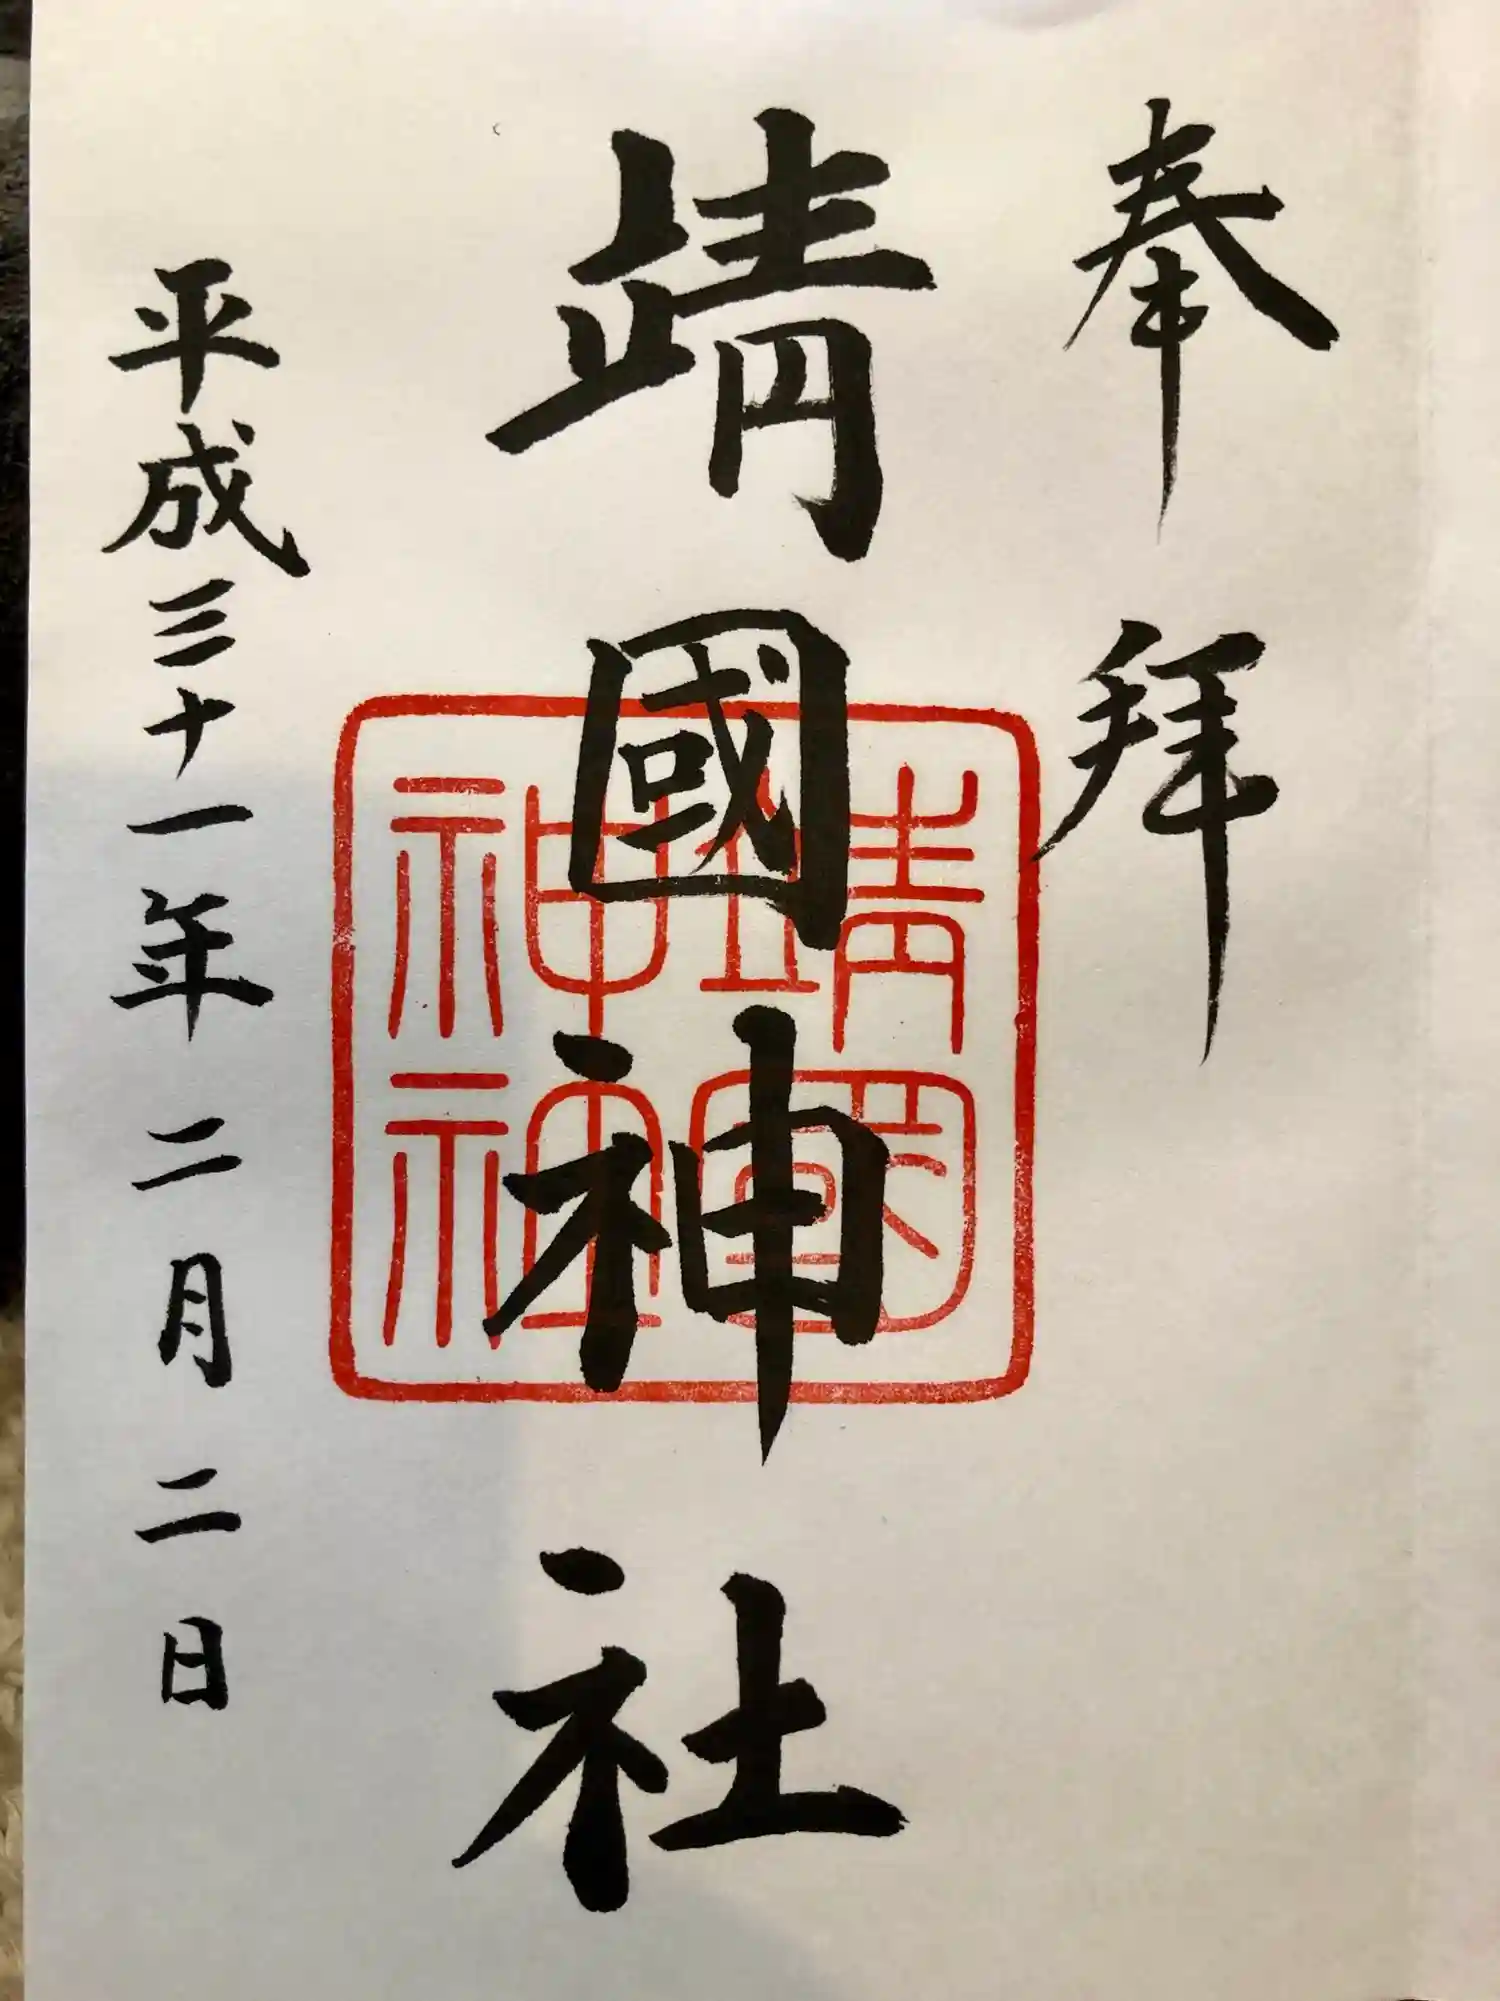 奉拜
靖國神社
靖國
神社
平成三十一年二月二日